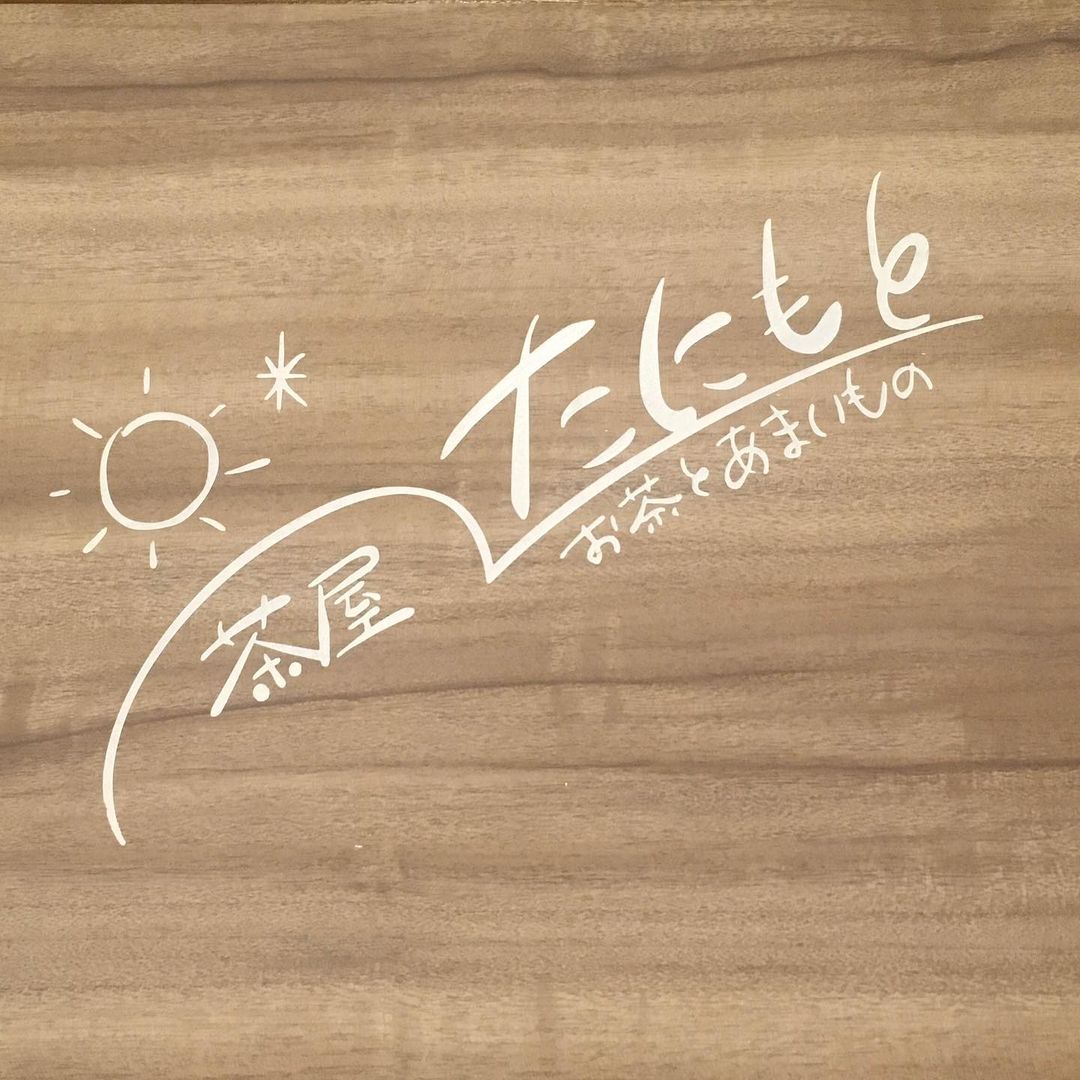 茶屋
たにもと
お茶とあまいもの